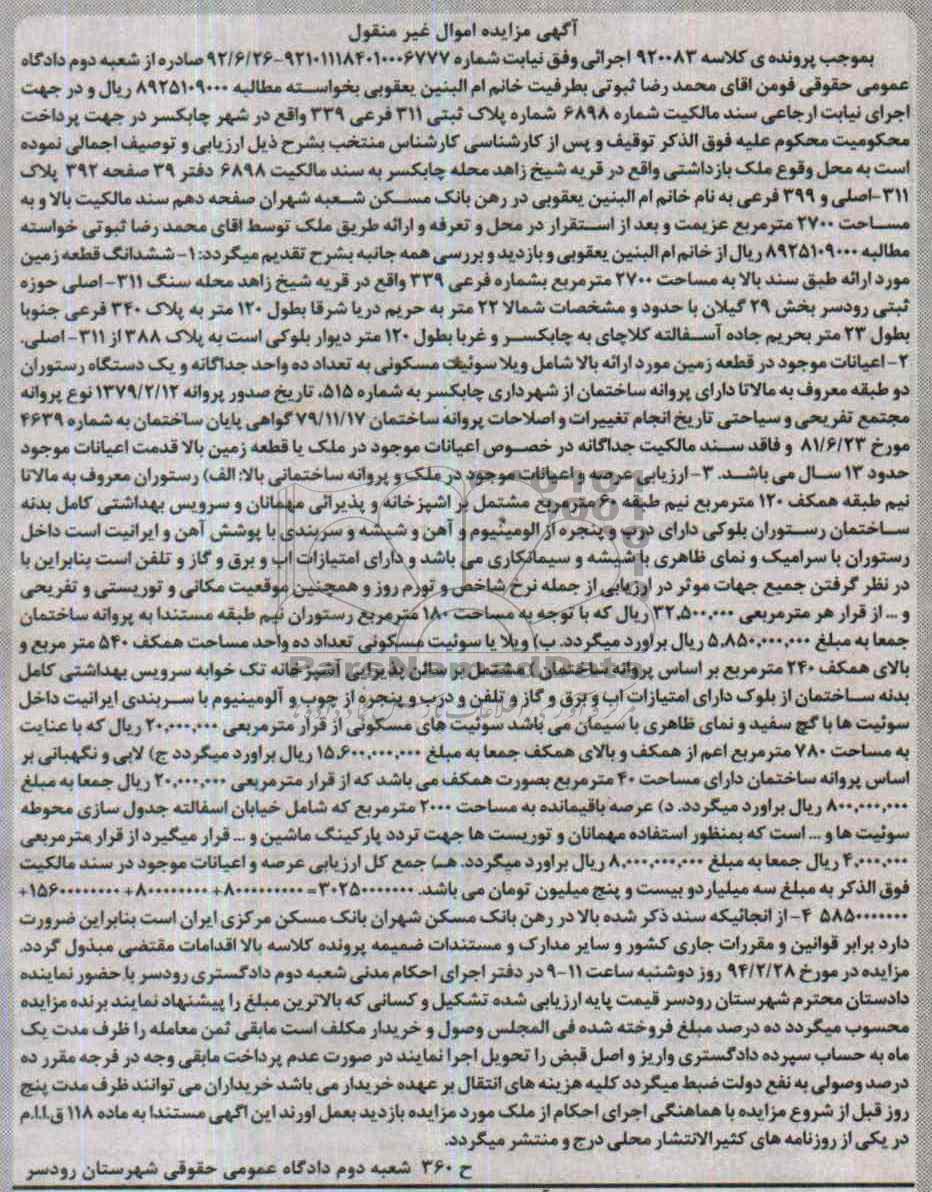 آگهی مزایده اموال غیر منقول
بموجب پرونده ی کلاسه ۹۲۰۰۸۳ اجرائی وفق نیابت شماره ۹۲۱۰۱۱۱۸۴۰۱۰۰۰۶۷۷۷-۹۲/۶/۲۶ صادره از شعبه دوم دادگاه
عمومی حقوقی فومن اقای محمد رضا ثبوتی بطرفیت خانم ام البنین یعقوبی بخواسته مطالبه ۸۹۲۵۱۰۹۰۰۰ ریال و در جهت
اجرای نیابت ارجاعی سند مالکیت شماره ۶۸۹۸ شماره پلاک ثبتی ۳۱۱ فرعی ۳۳۹ واقع در شهر چابکسر در جهت پرداخت
محکومیت محکوم علیه فوق الذکر توقیف و پس از کارشناسی کارشناس منتخب بشرح ذیل ارزیابی و توصیف اجمالی نموده
است به محل وقوع ملک بازداشتی واقع در قریه شیخ زاهد محله چابکسر به سند مالکیت ۶۸۹۸ دفتر ۳۹ صفحه ۳۹۲ پلاک
۳۱۱-اصلی و ۳۹۹ فرعی به نام خانم ام البنین یعقوبی در رهن بانک مسکن شعبه شهران صفحه دهم سند مالکیت بالا و به
مساحت ۲۷۰۰ مترمربع عزیمت و بعد از استقرار در محل و تعرفه و ارائه طریق ملک توسط اقای محمد رضا ثبوتی خواسته
مطالبه ۸۹۲۵۱۰۹۰۰۰ ریال از خانم ام البنین یعقوبی و بازدید و بررسی همه جانبه بشرح تقدیم میگردد: ۱- ششدانگ قطعه زمین
مورد ارائه طبق سند بالا به مساحت ۲۷۰۰ مترمربع بشماره فرعی ۳۳۹ واقع در قریه شیخ زاهد محله سنگ ۳۱۱- اصلی حوزه
ثبتی رودسر بخش ۲۹ گیلان با حدود و مشخصات شمالا ۲۲ متر به حریم دریا شرقا بطول ۱۲۰ متر به پلاک ۳۴۰ فرعی جنوبا
بطول ۲۳ متر بحریم جاده آسفالته کلاچای به چابکسر و غربا بطول ۱۲۰ متر دیوار بلوکی است به پلاک ۳۸۸ از ۳۱۱- اصلی.
۲- اعیانات موجود در قطعه زمین مورد ارائه بالا شامل ویلا سوئیت مسکونی به تعداد ده واحد جداگانه و یک دستگاه رستوران
دو طبقه معروف به مالاتا دارای پروانه ساختمان از شهرداری چابکسر به شماره ۵۱۵، تاریخ صدور پروانه ۱۳۷۹/۲/۱۲ نوع پروانه
مجتمع تفریحی و سیاحتی تاریخ انجام تغییرات و اصلاحات پروانه ساختمان ۷۹/۱۱/۱۷ گواهی پایان ساختمان به شماره ۴۶۳۹
مورخ ۸۱/۶/۲۳ و فاقد سند مالکیت جداگانه در خصوص اعیانات موجود در ملک یا قطعه زمین بالا قدمت اعیانات موجود
حدود ۱۳ سال می باشد. ۳- ارزیابی عرصه و اعیانات موجود در ملک و پروانه ساختمانی بالا: الف) رستوران معروف به مالاتا
نیم طبقه همکف ۱۲۰ مترمربع نیم طبقه ۶۰ مترمربع مشتمل بر اشپزخانه و پذیرائی مهمانان و سرویس بهداشتی کامل بدنه
ساختمان رستوران بلوکی دارای درب و پنجره از الومینیوم و آهن و شیشه و سربندی با پوشش آهن و ایرانیت است داخل
رستوران با سرامیک و نمای ظاهری با شیشه و سیمانکاری می باشد و دارای امتیازات اب و برق و گاز و تلفن است بنابراین با
در نظر گرفتن جمیع جهات موثر در ارزیابی از جمله نرخ شاخص و تورم روز و همچنین موقعیت مکانی و توریستی و تفریحی
و ... از قرار هر مترمربعی ۳۲,۵۰۰,۰۰۰ ریال که با توجه به مساحت ۱۸۰ مترمربع رستوران نیم طبقه مستندا به پروانه ساختمان
جمعا به مبلغ ۵,۸۵۰,۰۰۰,۰۰۰ ریال براورد میگردد. ب) ویلا یا سوئیت مسکونی تعداد ده واحد مساحت همکف ۵۴۰ متر مربع و
بالای همکف ۲۴۰ مترمربع بر اساس پروانه ساختمان که مشتمل بر سالن پذیرایی آشپزخانه تک خوابه سرویس بهداشتی کامل
بدنه ساختمان از بلوک دارای امتیازات اب و برق و گاز و تلفن و درب و پنجره از چوب و آلومینیوم با سربندی ایرانیت داخل
سوئیت ها با گچ سفید و نمای ظاهری با سیمان می باشد سوئیت های مسکونی از قرار مترمربعی ۲۰,۰۰۰,۰۰۰ ریال که با عنایت
به مساحت ۷۸۰ مترمربع اعم از همکف و بالای همکف جمعا به مبلغ ۱۵,۶۰۰,۰۰۰,۰۰۰ ریال براورد میگردد ج) لابی و نگهبانی بر
اساس پروانه ساختمان دارای مساحت ۴۰ مترمربع بصورت همکف می باشد که از قرار مترمربعی ۲۰,۰۰۰,۰۰۰ ریال جمعا به مبلغ
۸۰۰,۰۰۰,۰۰۰ ریال براورد میگردد. د) عرصه باقیمانده به مساحت ۲۰۰۰ مترمربع که شامل خیابان اسفالته جدول سازی محوطه
سوئیت ها و ... است که بمنظور استفاده مهمانان و توریست ها جهت تردد پارکینگ ماشین و ... قرار میگیرد از قرار مترمربعی
۴,۰۰۰,۰۰۰ ریال جمعا به مبلغ ۸,۰۰۰,۰۰۰,۰۰۰ ریال براورد میگردد. هـ) جمع کل ارزیابی عرصه و اعیانات موجود در سند مالکیت
فوق الذکر به مبلغ سه میلیارد و بیست و پنج میلیون تومان می باشد. ۳۰۲۵۰۰۰۰۰۰۰= ۸۰۰۰۰۰۰۰۰۰+ ۸۰۰۰۰۰۰۰۰+ ۱۵۶۰۰۰۰۰۰۰۰+
۵۸۵۰۰۰۰۰۰۰ ۴- از انجائیکه سند ذکر شده بالا در رهن بانک مسکن شهران بانک مسکن مرکزی ایران است بنابراین ضرورت
دارد برابر قوانین و مقررات جاری کشور و سایر مدارک و مستندات ضمیمه پرونده کلاسه بالا اقدامات مقتضی مبذول گردد.
مزایده در مورخ ۹۴/۲/۲۸ روز دوشنبه ساعت ۱۱-۹ در دفتر اجرای احکام مدنی شعبه دوم دادگستری رودسر با حضور نماینده
دادستان محترم شهرستان رودسر قیمت پایه ارزیابی شده تشکیل و کسانی که بالاترین مبلغ را پیشنهاد نمایند برنده مزایده
محسوب میگردد ده درصد مبلغ فروخته شده فی المجلس وصول و خریدار مکلف است مابقی ثمن معامله را ظرف مدت یک
ماه به حساب سپرده دادگستری واریز و اصل قبض را تحویل اجرا نمایند در صورت عدم پرداخت مابقی وجه در فرجه مقرر ده
درصد وصولی به نفع دولت ضبط میگردد کلیه هزینه های انتقال بر عهده خریدار می باشد خریداران می توانند ظرف مدت پنج
روز قبل از شروع مزایده با هماهنگی اجرای احکام از ملک مورد مزایده بازدید بعمل اورند این اگهی مستندا به ماده ۱۱۸ ق.ا.ا.م
در یکی از روزنامه های کثیرالانتشار محلی درج و منتشر میگردد.
ح ۳۶۰ شعبه دوم دادگاه عمومی حقوقی شهرستان رودسر
ParsNamadData